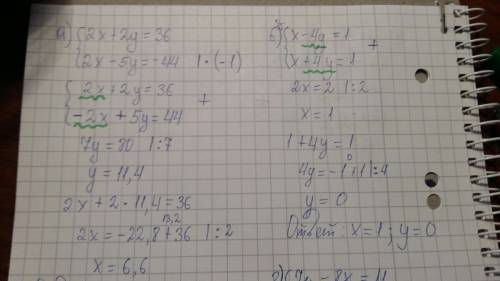 а) {2x+2y=36
{2x-5y=-44 |·(-1)
{2x+2y=36 +
{-2x+5y=44
7y=80 |:7
y=11,4
2x+2·11,4=36
13,2
2x=-22,8+36 |:2
x=6,6
б) {x-4y=1 +
{x+4y=1
2x=2 |:2
x=1
1+4y=1
0
4y=-1+1 |:4
y=0
Ответ: x=1; y=0
7y-8x=11